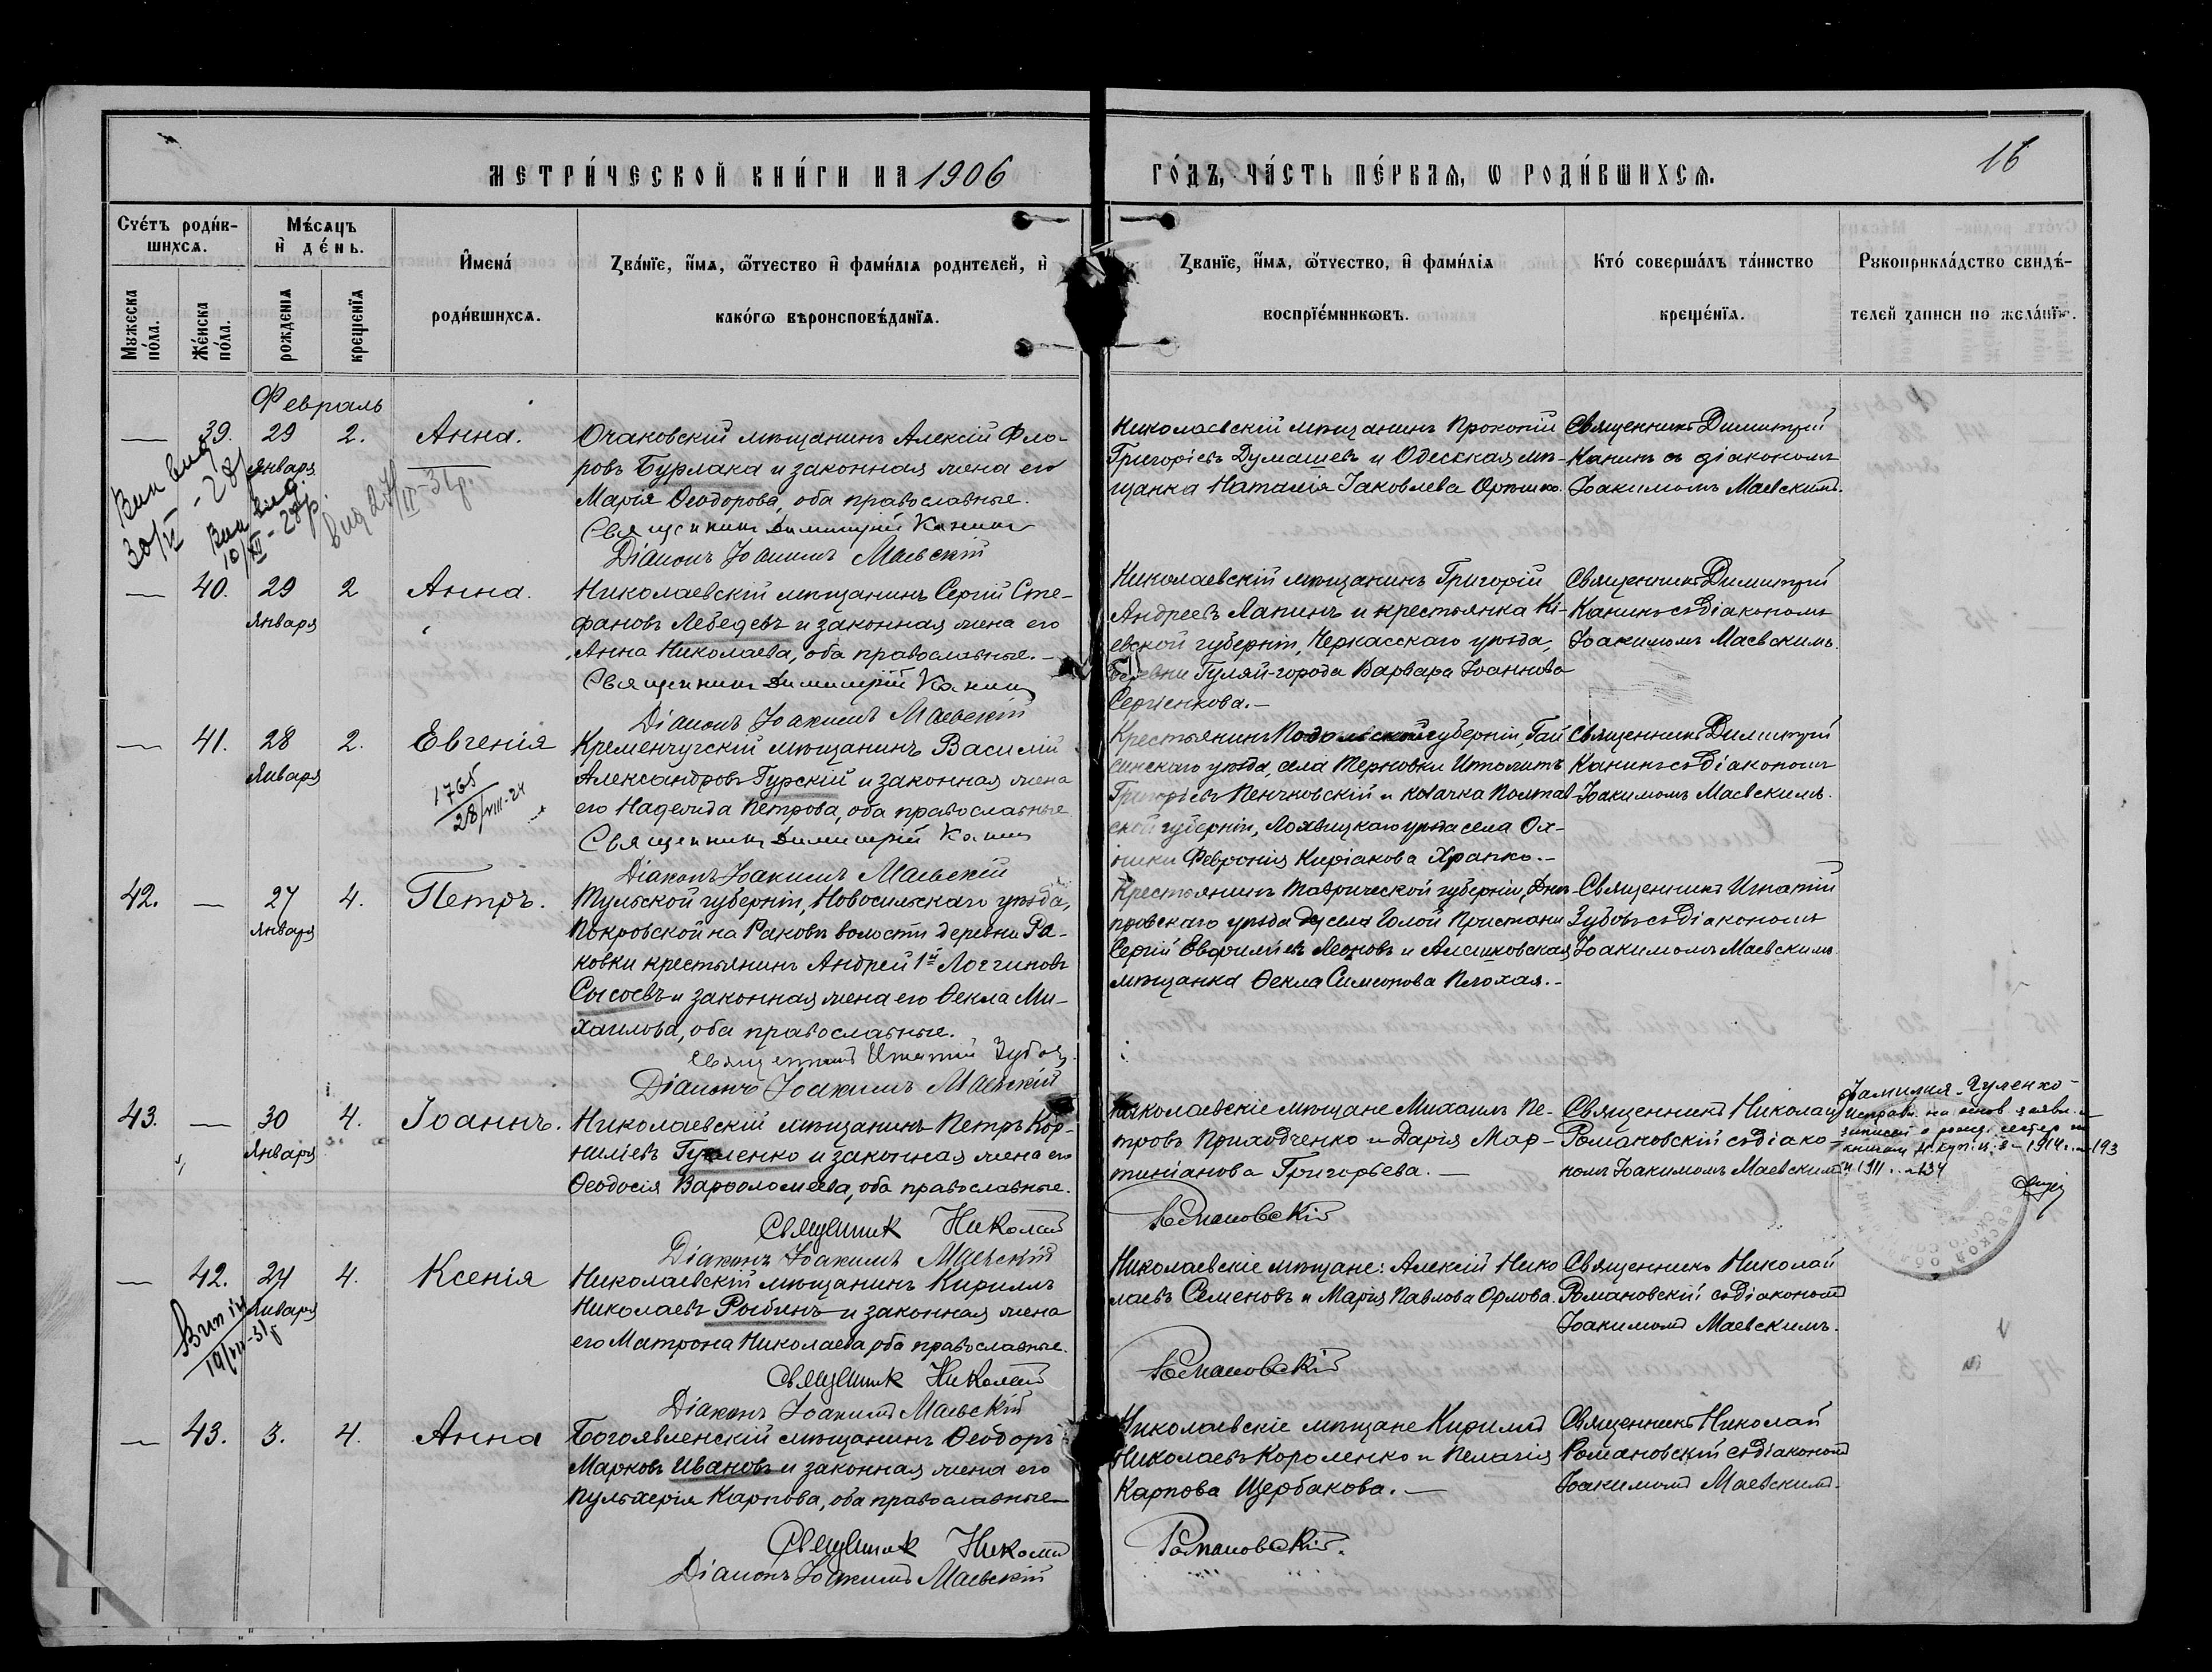 МЕТРИ́ЧЕСКОЙ КНИ́ГИ НА 1906
ГО́ДЪ, ЧА́СТЬ ПЕ́РВАѦ, Ѡ РОДИ́ВШИХСѦ.
16
Счéтъ роди́в-
шихсѧ.
Мѣ́сѧцъ
и҆ де́нь.
И҆мена́
роди́вшихсѧ.
Зва́нїе, и҆́мѧ, ѻ҆́тчество и҆ фами́лїѧ родителей, и҆
како́гѡ вѣроисповѣ́данїѧ.
Зва́нїе, и҆́мѧ, ѻ҆́тчество, и҆ фами́лїѧ
воспрїе́мникѡвъ.
Кто́ соверша́лъ та́инство
креще́нїѧ.
Рꙋкоприкла́дство свидѣ́-
телей записи по жела́нїю.
Мꙋжеска
по́ла.
Же́нска
по́ла.
рожденїѧ
крещенїѧ
Февраль
— 39. 29 2. Анна.
Января
Очаковскій мѣщанинъ Алексій Фло-
ровъ Бурлака и законная жена его
Марія Ѳеодорова, оба православные.
Священникъ Димитрій Канинъ
Діаконъ Іоакимъ Маевскій
Николаевскій мѣщанинъ Прокопій
Григоріевъ Думашевъ и Одесская мѣ-
щанка Наталія Іаковлева
Священникъ Димитрій
Канинъ съ діакономъ
Іоакимомъ Маевскимъ.
30/VI - 28
10/XII - 28р.
27/II-31р.
— 40. 29 2 Анна.
Января
Николаевскій мѣщанинъ Сергій Сте-
фановъ Лебедевъ и законная жена его
Анна Николаева, оба православные. —
Священникъ Димитрій Канинъ
Діаконъ Іоакимъ Маевскій
Николаевскій мѣщанинъ Григорій
Андреевъ Лапинъ и крестьянка Кі-
евской губерніи, Черкасскаго уѣзда,
деревни Гуляй-города Варвара Іоаннова
Сергіенкова. —
Священникъ Димитрій
Канинъ съ діакономъ
Іоакимомъ Маевскимъ.
— 41. 28 2. Евгенія
Января
1765
28/VIII-24
Кременчугскій мѣщанинъ Василій
Александровъ Гурскій и законная жена
его Надежда Петрова, оба православные
Священникъ Димитрій Канинъ
Діаконъ Іоакимъ Маевскій
Крестьянинъ Подольской губерніи, Гай
синскаго уѣзда, села Терновки Ипполитъ
Григорьевъ Пенчковскій и козачка Полтав-
ской губерніи, Лохвицкаго уѣзда села
Февронія Киріакова Храпко. —
Священникъ Димитрій
Канинъ съ діакономъ
Іоакимомъ Маевскимъ.
42. — 27 4. Петръ.
Января
Тульской губерніи, Новосильскаго уѣзда,
Покровской на Раковѣ волости деревни Ра-
ковки крестьянинъ Андрей 1й Логгиновъ
Сысоевъ и законная жена его Ѳекла Ми-
хаилова, оба православные.
Священникъ Игнатій Зубовъ
Діаконъ Іоакимъ Маевскій
Крестьянинъ Таврической губерніи, Днѣ-
провскаго уѣзда села Голой Пристани
Сергій Евфиміевъ Леоновъ и Алешковская
мѣщанка Ѳекла Симеонова Плохая. —
Священникъ Игнатій
Зубовъ съ діакономъ
Іоакимомъ Маевскимъ.
43. — 30 4. Іоаннъ.
Января
Николаевскій мѣщанинъ Петръ Кор-
ниліевъ Гуленко и законная жена его
Ѳеодосія Варѳоломеева, оба православные.
Священникъ Николай
Діаконъ Іоакимъ Маевскій
Николаевскіе мѣщане Михаилъ Пе-
тровъ Приходченко и Дарія Мар-
тиніанова Григорьева. —
Романовскій
Священникъ Николай
Романовскій съ діако-
номъ Іоакимомъ Маевскимъ
Фамилия - Гуленко -
исправл. на основ. заявл. и
записей о рожд. сестер
— 42. 24 4. Ксенія
Января
19/VII-31р
Николаевскій мѣщанинъ Кириллъ
Николаевъ Рыбинъ и законная жена
его Матрона Николаева, оба православные.
Священникъ Николай
Діаконъ Іоакимъ Маевскій
Николаевскіе мѣщане: Алексій Нико
лаевъ Семеновъ и Марія Павлова Орлова.
Романовскій
Священникъ Николай
Романовскій съ діакономъ
Іоакимомъ Маевскимъ.
— 43. 3. 4. Анна
Богоявленскій мѣщанинъ Ѳеодоръ
Марковъ Ивановъ и законная жена его
Пульхерія Карпова, оба православные —
Священникъ Николай
Діаконъ Іоакимъ Маевскій
Николаевскіе мѣщане Кириллъ
Николаевъ Короленко и Пелагія
Карпова Щербакова. —
Романовскій.
Священникъ Николай
Романовскій съ діакономъ
Іоакимомъ Маевскимъ.